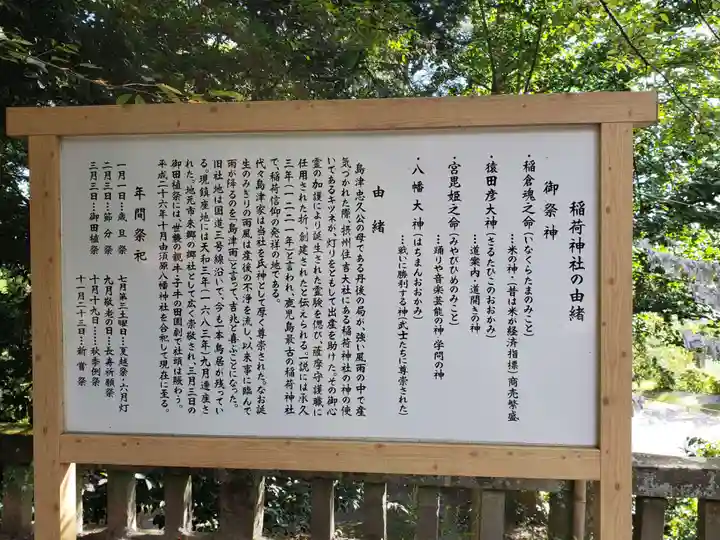 稲荷神社の由緒
御祭神
・稲倉魂之命(いなくらたまのみこと)
…米の神・(昔は米が経済指標)商売繁盛
・猿田彦大神(さるたひこのおおかみ)
…道案内・道開きの神
・宮毘姫之命(みやびひめのみこと)
…踊りや音楽芸能の神 学問の神
・八幡大神(はちまんおおかみ)
…戦いに勝利する神(武士たちに尊崇された)
由緒
島津忠久公の母である丹後の局が、強い風雨の中で産
気づかれた際、摂州住吉大社にある稲荷神社の神の使
いであるキツネが、灯りをともして出産を助けた。その御心
霊の加護により誕生された霊験を偲び、薩摩守護職に
任用された折、創建されたと伝えられる。(一説には承久
三年(一二二一年)と言われ、鹿児島最古の稲荷神社
で、稲荷信仰の発祥の地である。
代々島津家は当社を氏神として厚く尊崇された。なお誕
生のみぎりの雨風は産後の不浄を流し、以来事に臨んで
雨が降るのを「島津雨」と言って吉兆と喜ぶことになった。
旧社地は国道三号線沿いで、今も一本鳥居が残ってい
る。現鎮座地には天和三年(一六八三年)九月遷座さ
れた。地元市来郷の郷社として広く崇敬され、三月三日の
御田植祭には、世襲の親牛・子牛の田園劇で社頭は賑わう。
平成二十六年十月由須原八幡神社を合祀して現在に至る。
年間祭祀
一月一日…歳旦祭
二月三日…節分祭
三月三日…御田植祭
七月第三土曜日…夏越祭・六月灯
九月敬老の日…長寿祈願祭
十月十九日……秋季例祭
十一月二十三日…新嘗祭